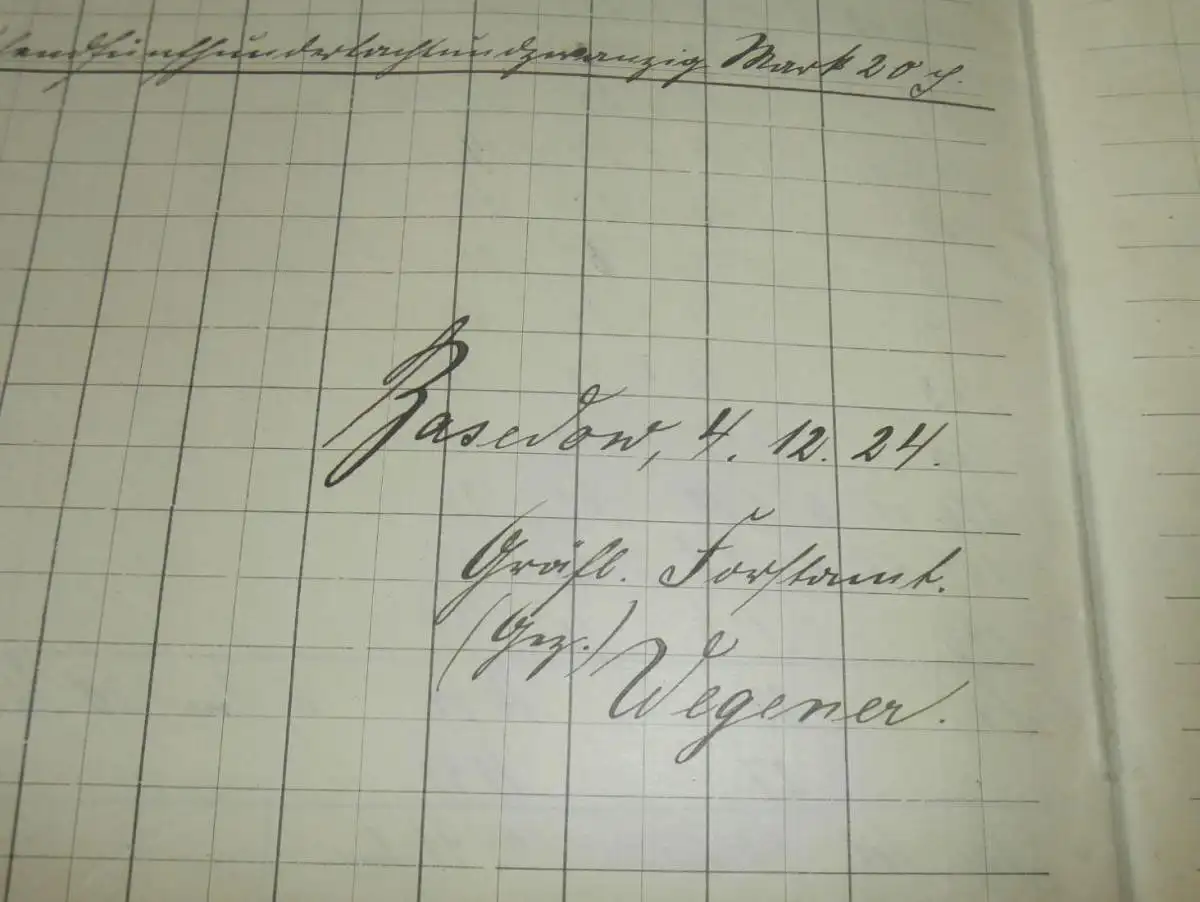 sendfünfhundertachtundzwanzig Mark 20 ₰.
Basedow, 4. 12. 24.
Gräfl. Forstamt.
(Gez.) Wegener.